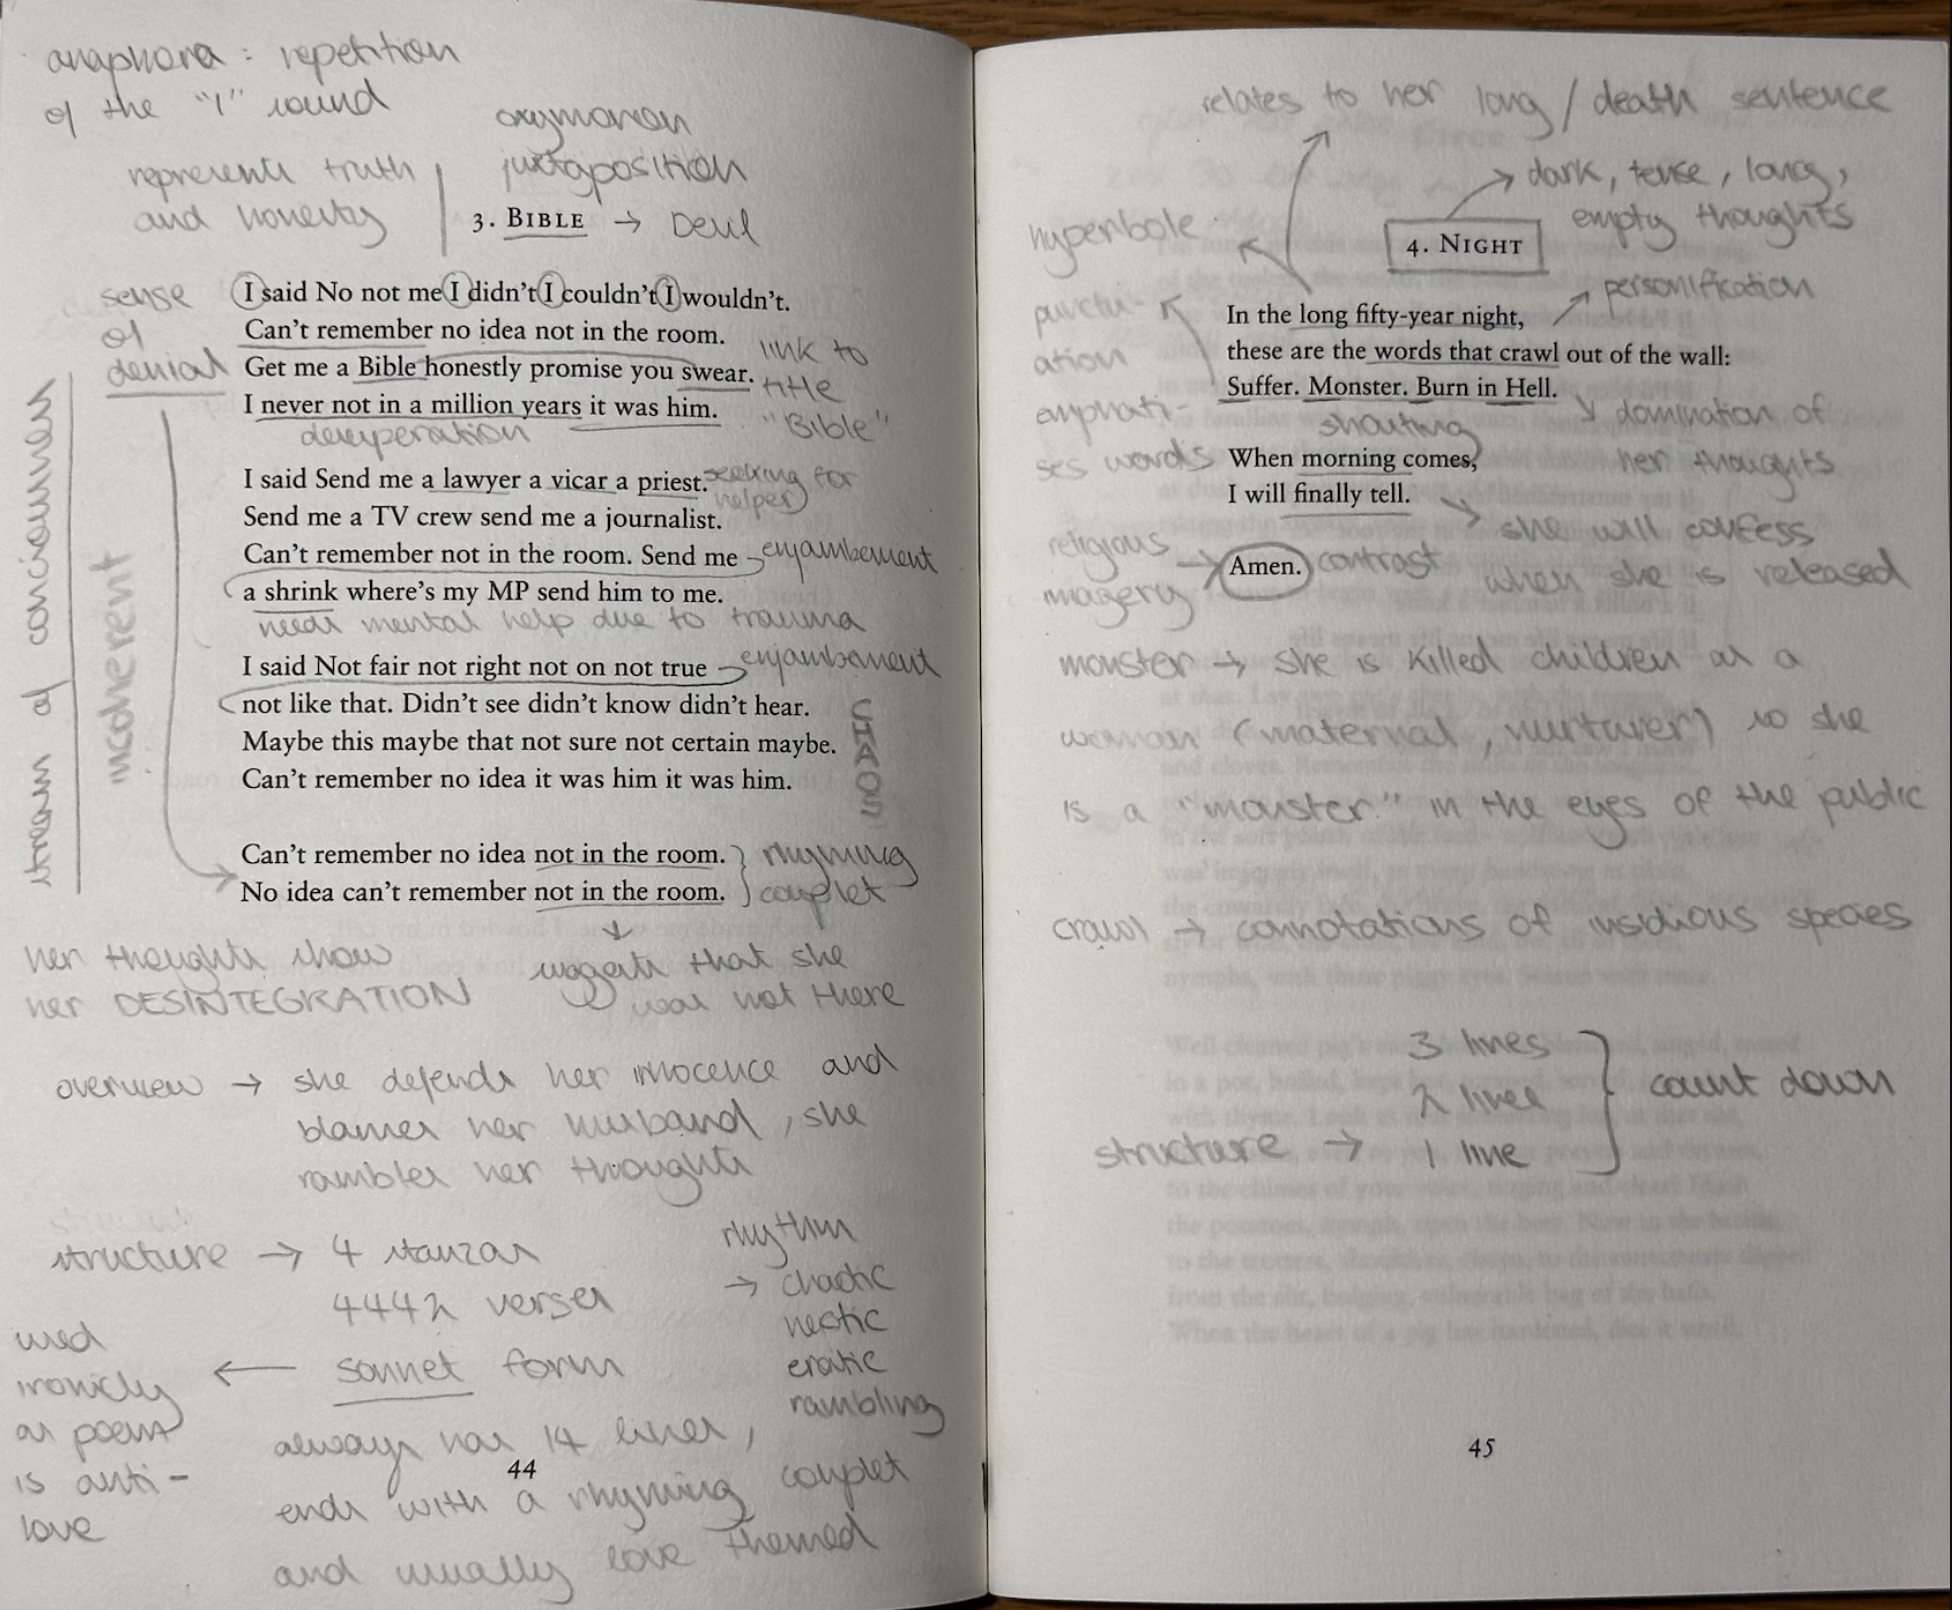 anaphora : repetition
of the "I" sound
represents truth
and honesty
oxymoron
juxtaposition
3. BIBLE → Devil
sense
of
denial
I said No not me I didn't I couldn't I wouldn't.
Can't remember no idea not in the room.
Get me a Bible honestly promise you swear.
I never not in a million years it was him.
desperation
link to
title
"Bible"
I said Send me a lawyer a vicar a priest.
seeking for
helper
Send me a TV crew send me a journalist.
Can't remember not in the room. Send me
enjambement
a shrink where's my MP send him to me.
needs mental help due to trauma
I said Not fair not right not on not true
enjambement
not like that. Didn't see didn't know didn't hear.
Maybe this maybe that not sure not certain maybe.
Can't remember no idea it was him it was him.
CHAOS
stream of conciousness
incoherent
Can't remember no idea not in the room.
No idea can't remember not in the room.
rhyming
couplet
her thoughts show
her DESINTEGRATION
suggests that she
was not there
overview → she defends her innocence and
blames her husband, she
rambles her thoughts
structure → 4 stanzas
4442 verses
sonnet form
always has 14 lines,
ends with a rhyming couplet
and usually love themed
used
ironicly
as poem
is anti-
love
rhythm
→ chaotic
hectic
eratic
rambling
44
relates to her long / death sentence
4. NIGHT
→ dark, tense, long,
empty thoughts
hyperbole
personification
punctu-
ation
emphati-
ses words
In the long fifty-year night,
these are the words that crawl out of the wall:
Suffer. Monster. Burn in Hell.
shouting
domination of
her thoughts
When morning comes,
I will finally tell.
she will confess
when she is released
religious
imagery
Amen.
contrast
monster → she is killed children as a
woman (maternal, nurturer) so she
is a "monster" in the eyes of the public
crawl → connotations of insidious species
3 lines
2 lines
structure → 1 line
count down
45